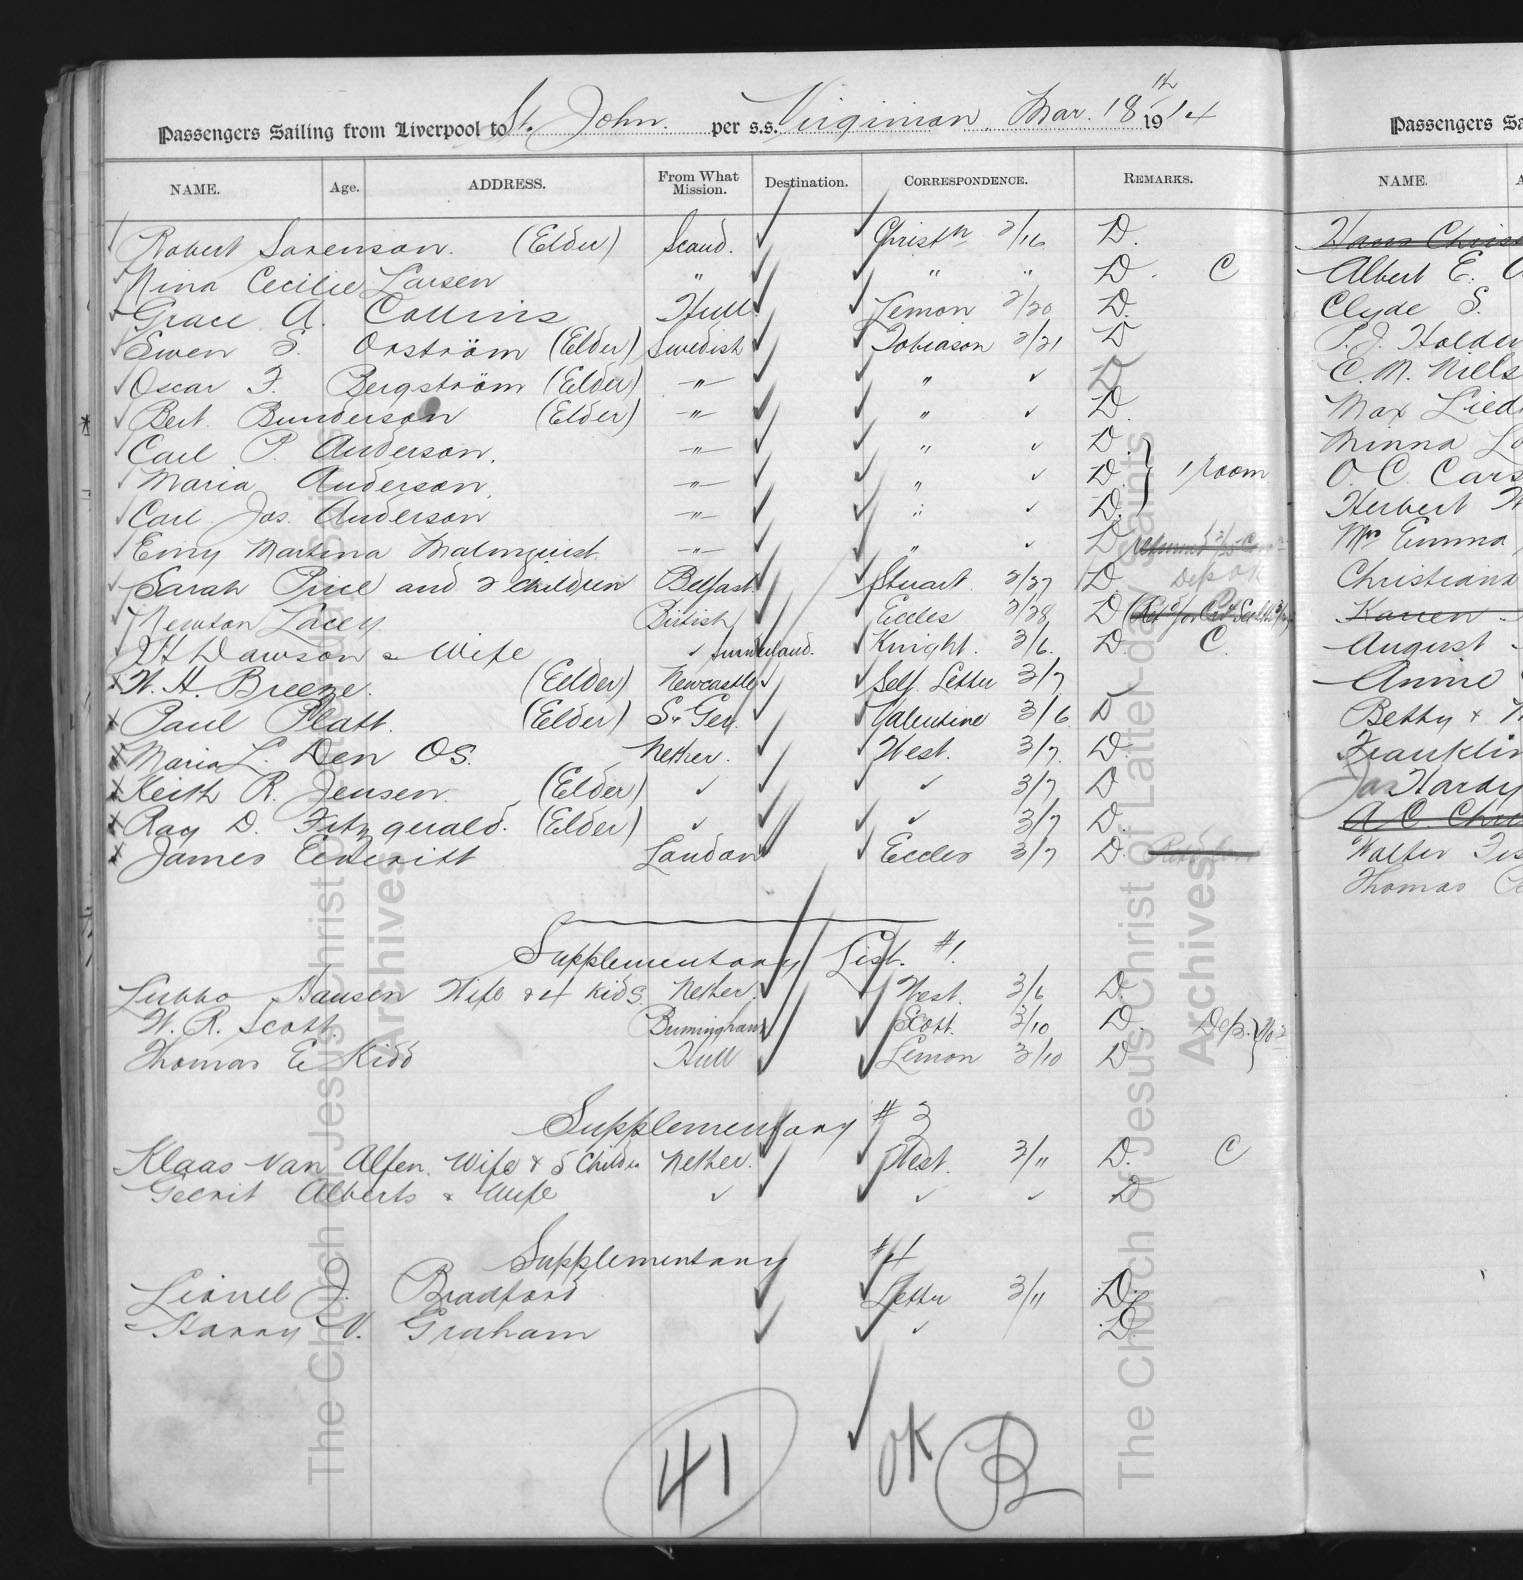 Passengers Sailing from Liverpool to St. John. per s.s. Virginian. Mar. 18th 1914
NAME. Age. ADDRESS. From What Mission. Destination. CORRESPONDENCE. REMARKS.
Robert Sorenson. (Elder) Scand. Christn 2/16 D.
Nina Cecilie Larsen " " " D. C
Grace A. Collins Hull Lemon 2/20 D.
Swen S. Orström (Elder) Swedish Tobiason 2/21 D
Oscar F. Bergström (Elder) " " ✓ D
* Bert Bunderson (Elder) " " ✓ D.
Carl P. Anderson. " " ✓ D.
Maria Anderson. " " ✓ D. } 1 room
Carl Jos. Anderson " " ✓ D.
Emy Martina Malmquist " " ✓ D returned
Sarah Price and 2 children Belfast Stuart 2/27 D. Dep OK
Newton Lacey British Eccles 2/28 D
Dawson & Wife ✓ Sunderland. Knight. 3/6. D C.
W. H. Breeze. (Elder) Newcastle Self Letter 3/7
Paul Platt. (Elder) S. Ger. Valentine 3/6 D
Maria L. Den OS. Nether. West. 3/7. D.
Keith R. Jensen. (Elder) ✓ ✓ 3/7 D
Ray D. Fitzgerald. (Elder) ✓ ✓ 3/7 D.
James Eckeritt London Eccles 3/7 D.
Supplementary List. #1.
Lubbo Hansen Wife & 4 Kids. Nether. West. 3/6 D.
W. R. Scott Birmingham Scott. 3/10 D. Dep. } No 2
Thomas E Kidd Hull Lemon 3/10 D
Supplementary #3
Klaas Van Alfen. Wife & 5 Childn Nether. West. 3/11 D. C
Geerit Alberts & Wife ✓ ✓ ✓ D
Supplementary #4
Lionel J. Bradford Letter 3/11 D.
Harry V. Graham ✓ D
41 OK
Passengers Sa
NAME.
Hans Chris
Albert E.
Clyde S.
P. J. Holder
C. M. Niels
Max Lied
Minna Lo
O. C. Cars
Herbert H
Mrs Emma
Christiana
Karen
August
Annie
Betty &
Franklin
Jas Hardy
A C. Chri
Walter
Thomas
The Church of Jesus Christ of Latter-day Saints
Archives
The Church of Jesus Christ of Latter-day Saints
Archives